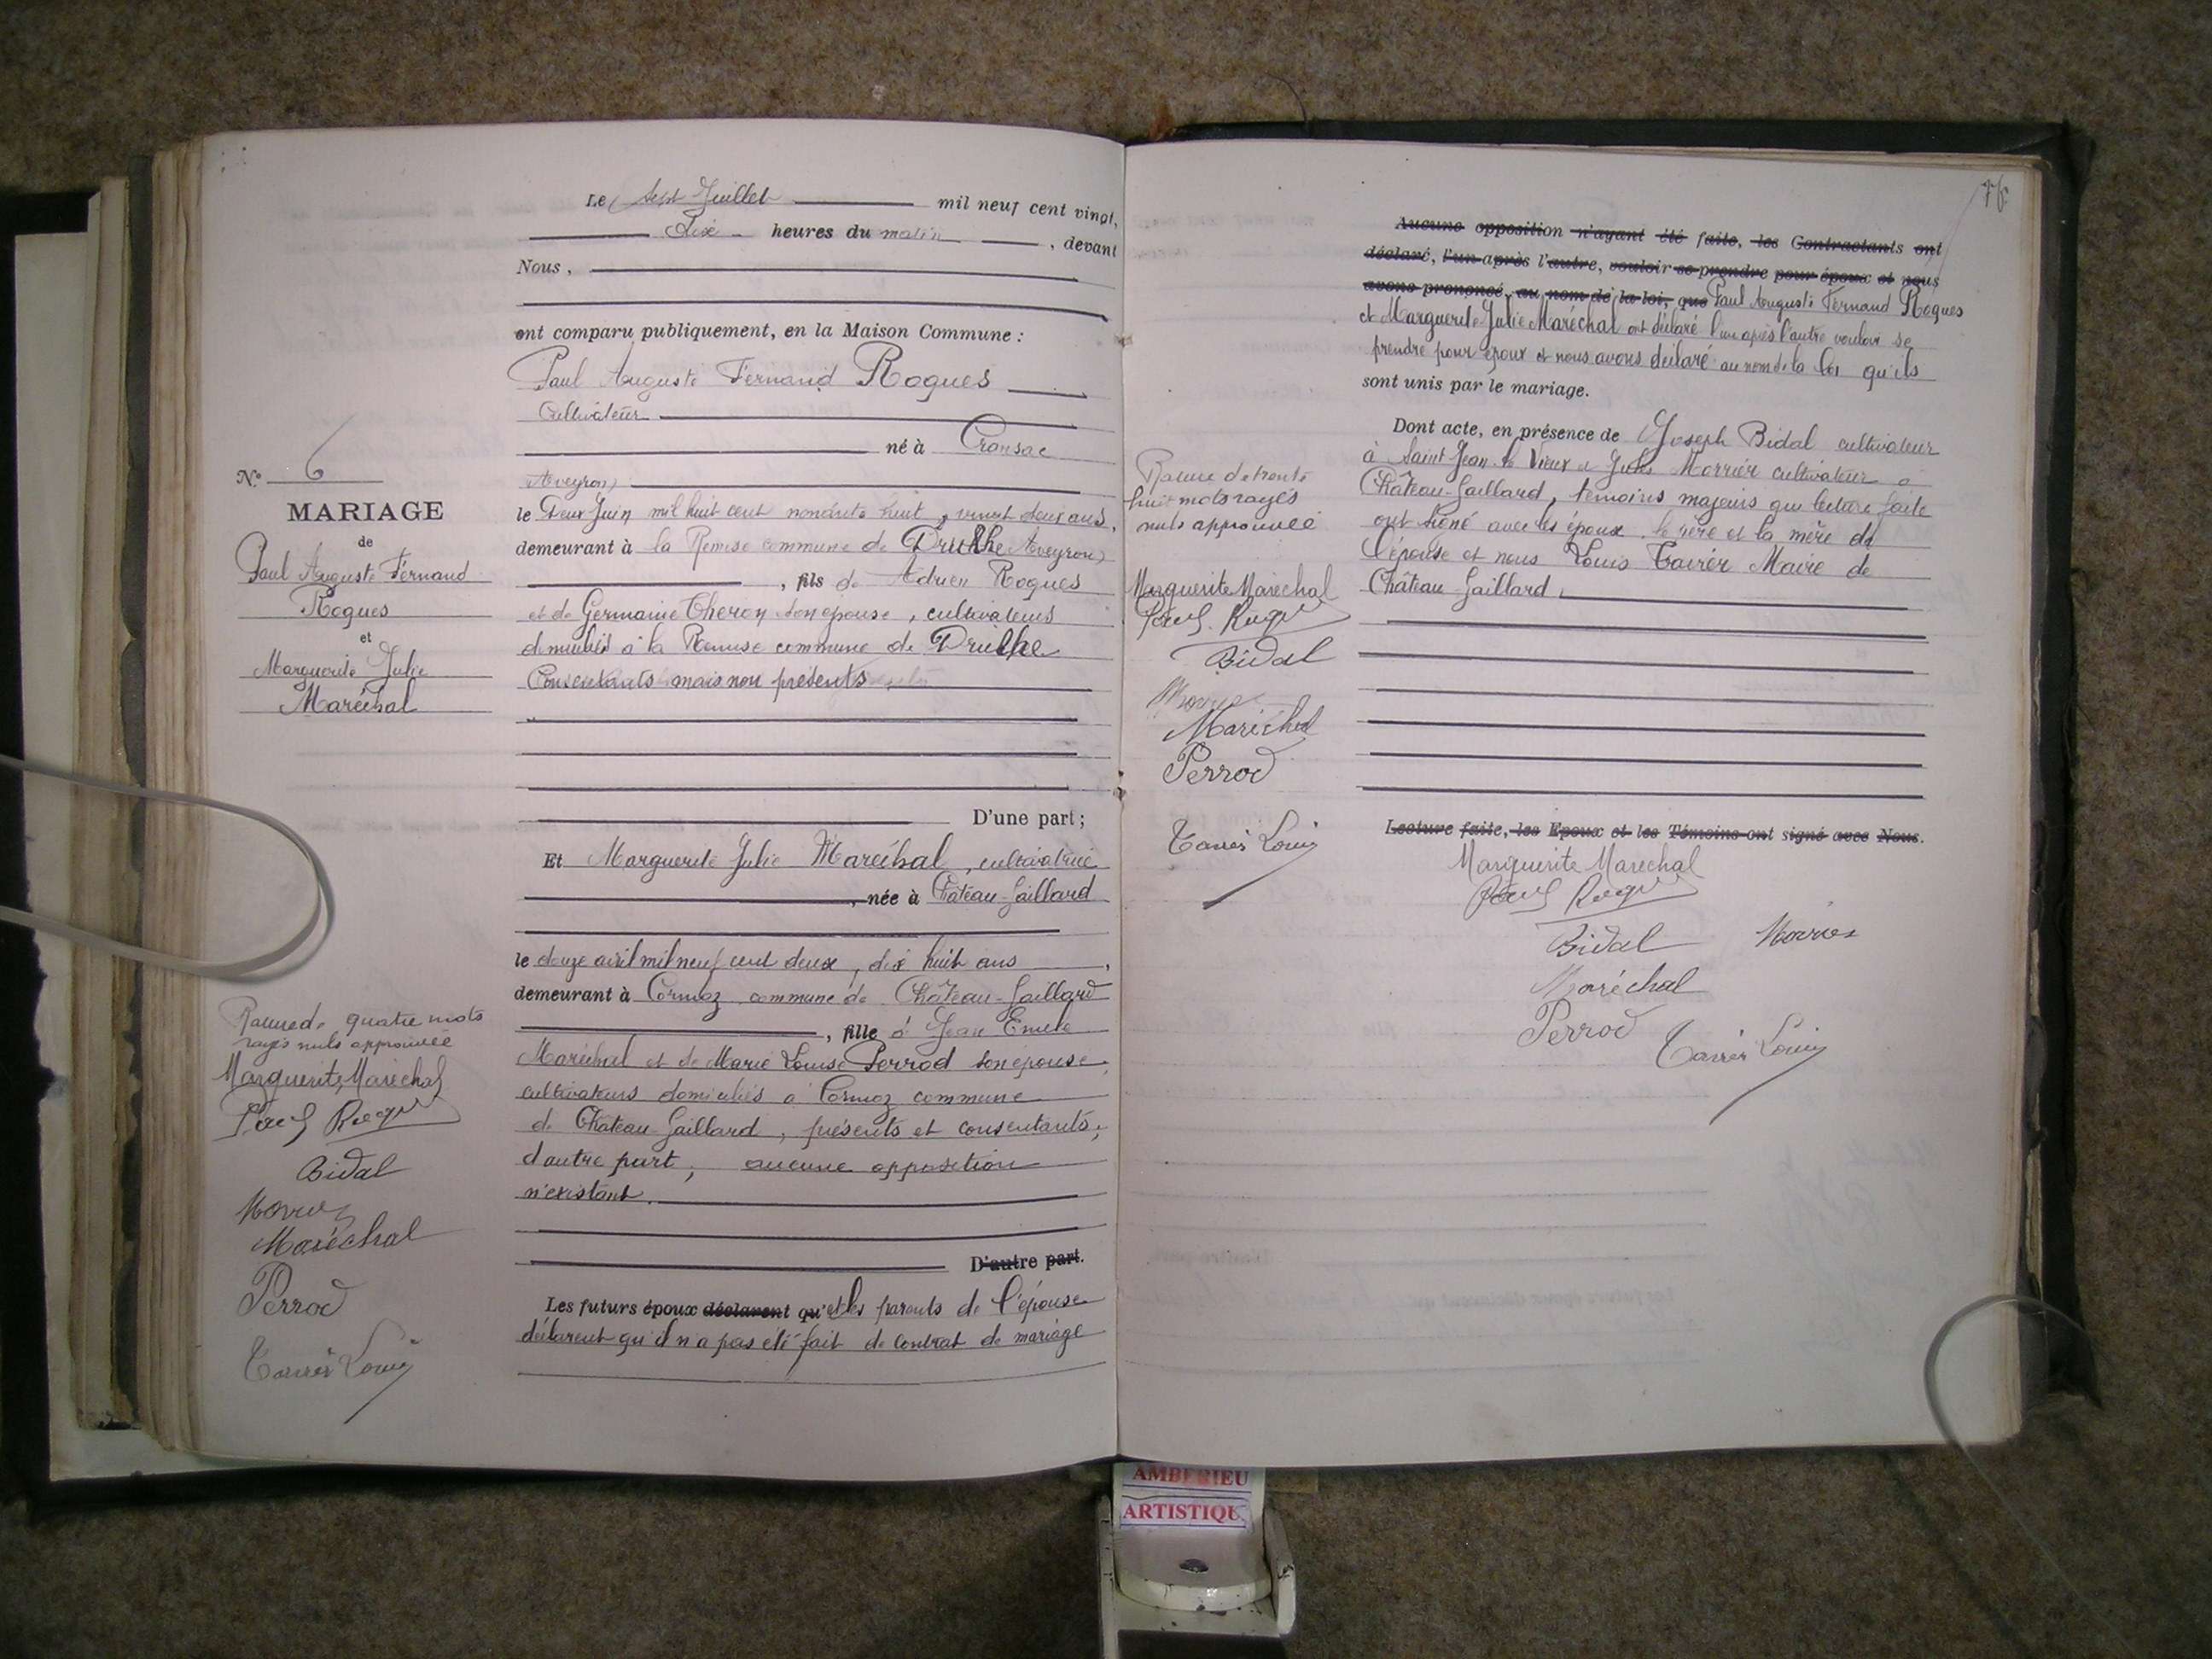 N.º 6
MARIAGE
de
Paul Auguste Fernand
Roques
et
Marguerite Julie
Maréchal
Rature de quatre mots
rayés nuls approuvée
Marguerite Maréchal
Paul Roques
Bidal
Morrier
Maréchal
Perrod
Louis
Le Sept Juillet mil neuf cent vingt,
Dix heures du matin, devant
Nous,
ont comparu publiquement, en la Maison Commune :
Paul Auguste Fernand Roques
Cultivateur
né à Cransac
Aveyron)
le Deux Juin mil huit cent nonante huit, vingt deux ans,
demeurant à la Remise commune de Drulhe Aveyron)
, fils de Adrien Roques
et de Germaine Theron son épouse, cultivateurs
domiciliés à la Remise commune de Drulhe
Consentants mais non présents
D'une part ;
Et Marguerite Julie Maréchal, cultivatrice
, née à Château-Gaillard
le douze avril mil neuf cent deux, dix huit ans,
demeurant à Cormoz commune de Château-Gaillard
, fille à Jean Emile
Maréchal et de Marie Louise Perrod son épouse
cultivateurs domiciliés à Cormoz commune
de Château-Gaillard, présents et consentants ;
d'autre part ; aucune opposition
n'existant.
D'autre part.
Les futurs époux déclarent qu' et les parents de l'épouse
déclarent qu'il n'a pas été fait de contrat de mariage
76
Aucune opposition n'ayant été faite, les Contractants ont
déclaré, l'un après l'autre, vouloir se prendre pour époux et nous
avons prononcé, au nom de la loi, que Paul Auguste Fernand Roques
et Marguerite Julie Maréchal ont déclaré l'un après l'autre vouloir se
prendre pour époux et nous avons déclaré au nom de la loi qu'ils
sont unis par le mariage.
Dont acte, en présence de Joseph Bidal cultivateur
à Saint Jean le Vieux et Jules Morrier cultivateur à
Château-Gaillard, témoins majeurs qui lecture faite
ont signé avec les époux le père et la mère de
l'épouse et nous Louis Maire de
Château-Gaillard.
Rature de trente
huit mots rayés
nuls approuvée
Marguerite Maréchal
Paul Roques
Bidal
Morrier
Maréchal
Perrod
Louis
Lecture faite, les Epoux et les Témoins ont signé avec Nous.
Marguerite Maréchal
Paul Roques
Bidal Morrier
Maréchal
Perrod
Louis
AMBERIEU
ARTISTIQU